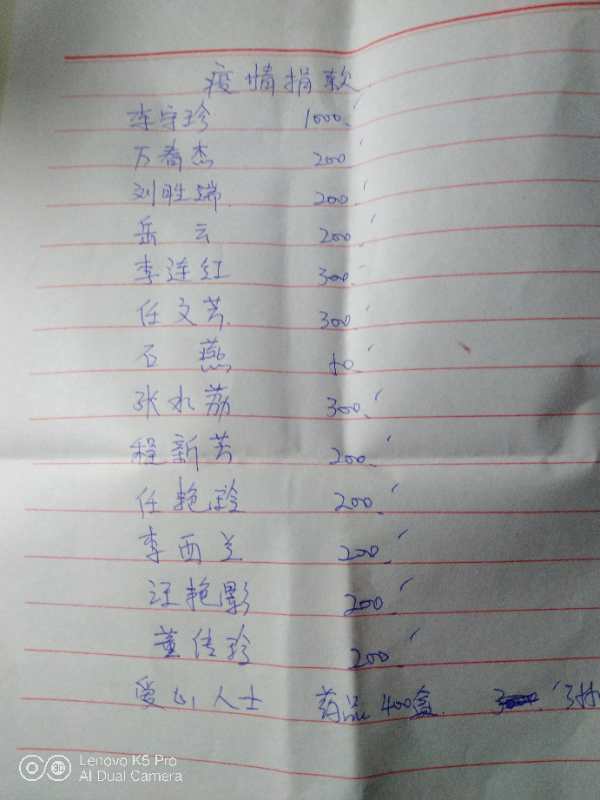 疫情捐款
李守珍 1000.
万春杰 200
刘胜瑞 200
岳云 200
李连红 300
任文芳 300
石燕
张水荔 300.
程新芳 200.
任艳玲 200.
李西兰 200.
汪艳影 200.
董传珍 200
爱心人士 药品400盒
Lenovo K5 Pro
AI Dual Camera